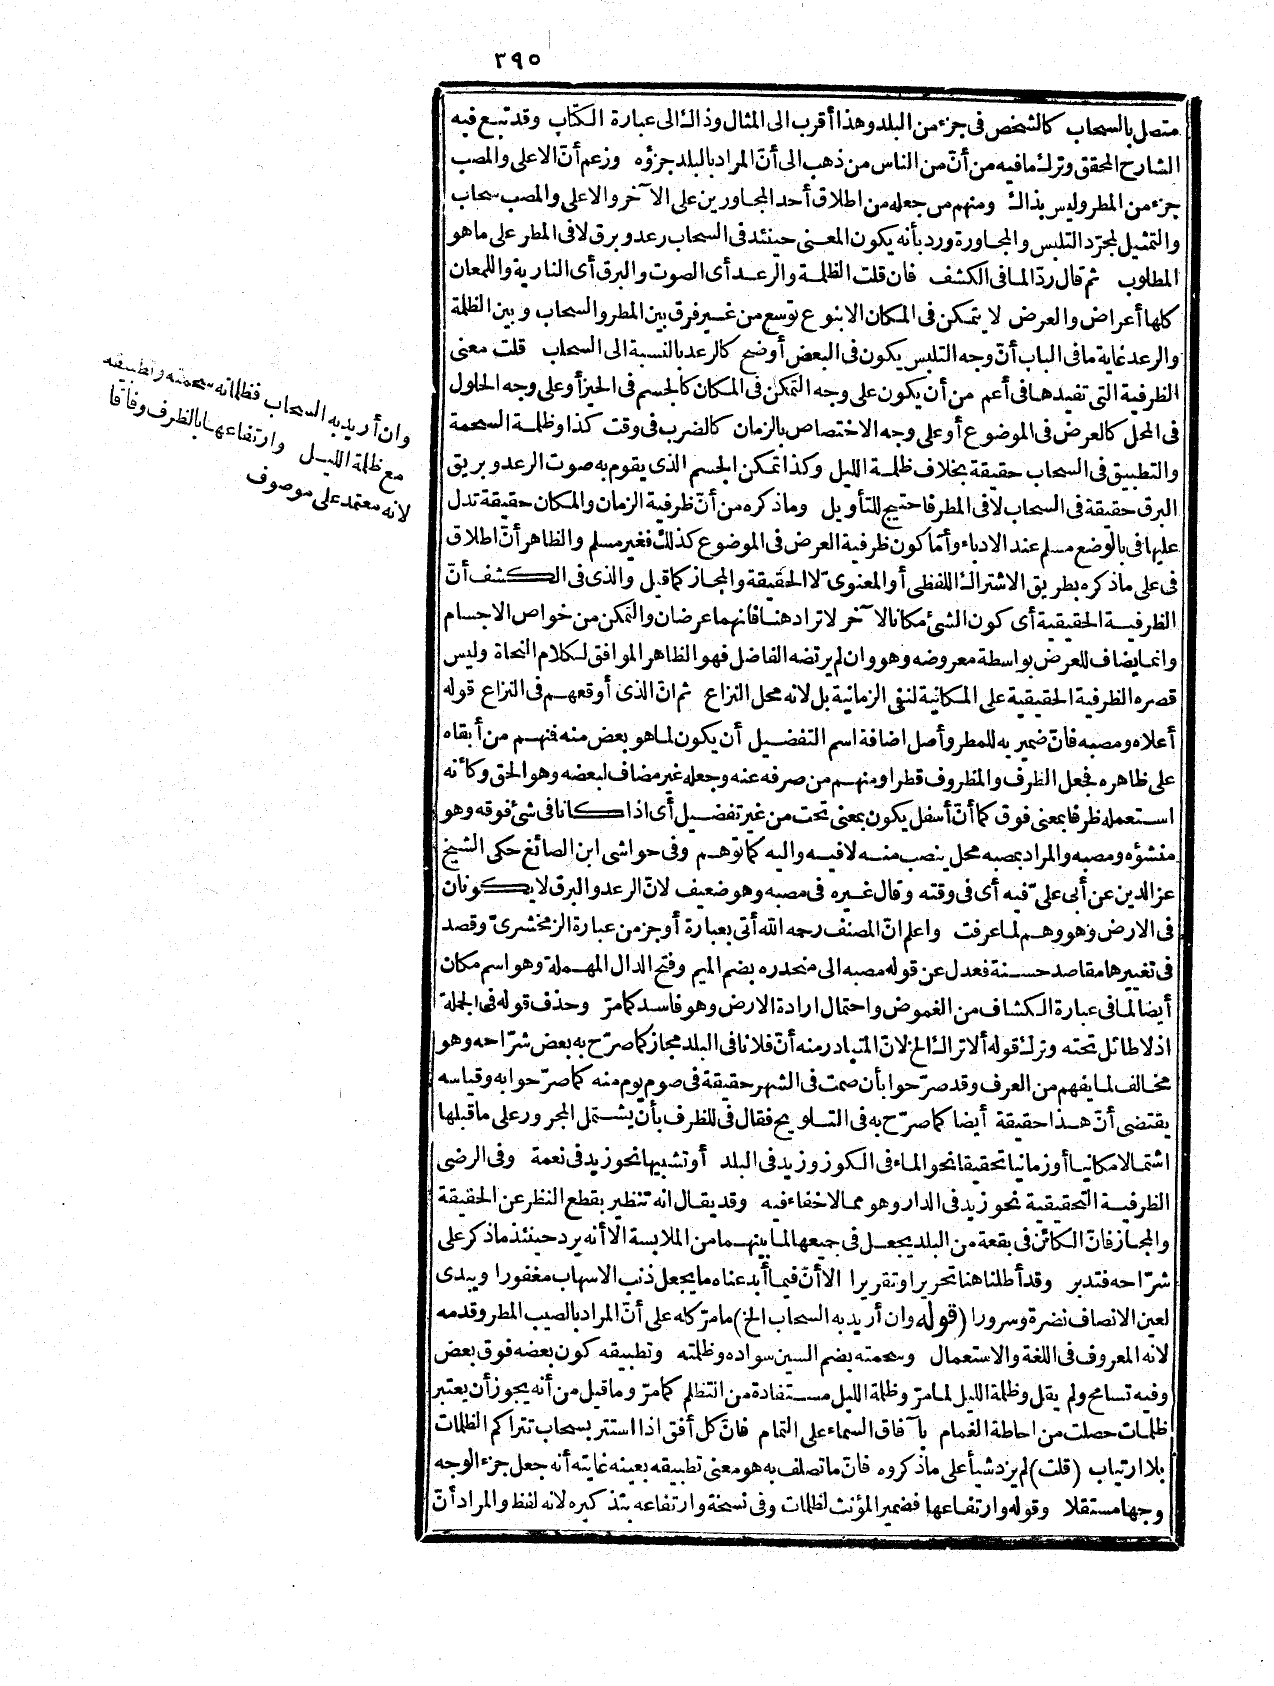 ٣٩٥
متصل بالسحاب كالشخص فى جزء من البلد وهذا أقرب الى المثال وذاك الى عبارة الكتاب وقد تبع فيه
الشارح المحقق وترك ما فيه من أنّ من الناس من ذهب الى أنّ المراد بالبلد جزؤه وزعم أنّ الاعلى والمصب
جزء من المطر وليس بذاك ومنهم من جعله من اطلاق أحد المجاورين على الآخر والاعلى والمصب سحاب
والتمثيل لمجرّد التلبس والمجاورة ورد بأنه يكون المعنى حينئذ فى السحاب رعد وبرق لا فى المطر على ما هو
المطلوب ثم قال ردّا لما فى الكشف فان قلت الظلمة والرعد أى الصوت والبرق أى النارية واللمعان
كلها أعراض والعرض لا يتمكن فى المكان الا بنوع توسع من غير فرق بين المطر والسحاب وبين الظلمة
والرعد غاية ما فى الباب أنّ وجه التلبس يكون فى البعض أوضح كالرعد بالنسبة الى السحاب قلت معنى
الظرفية التى تفيدها فى أعم من أن يكون على وجه التمكن فى المكان كالجسم فى الحيز أو على وجه الحلول
فى المحل كالعرض فى الموضوع أو على وجه الاختصاص بالزمان كالضرب فى وقت كذا وظلمة السحمة
والتطبيق فى السحاب حقيقة بخلاف ظلمة الليل وكذا تمكن الجسم الذى يقوم به صوت الرعد وبريق
البرق حقيقة فى السحاب لا فى المطر فاحتيج للتأويل وما ذكره من أنّ ظرفية الزمان والمكان حقيقة تدل
عليها فى بالوضع مسلم عند الادباء وأمّا كون ظرفية العرض فى الموضوع كذلك فغير مسلم والظاهر أنّ اطلاق
فى على ما ذكره بطريق الاشتراك اللفظى أو المعنوىّ لا الحقيقة والمجاز كما قيل والذى فى الكشف أنّ
الظرفية الحقيقية أى كون الشئ مكانا لآخر لا تراد هنا فانهما عرضان والتمكن من خواص الاجسام
وانما يضاف للعرض بواسطة معروضه وهو وان لم يرتضه الفاضل فهو الظاهر الموافق لكلام النحاة وليس
قصره الظرفية الحقيقية على المكانية لنفى الزمانية بل لانه محل النزاع ثم انّ الذى أوقعهم فى النزاع قوله
أعلاه ومصبه فانّ ضمير به للمطر وأصل اضافة اسم التفضيل أن يكون لما هو بعض منه فمنهم من أبقاه
على ظاهره فجعل الظرف والمظروف قطرا ومنهم من صرفه عنه وجعله غير مضاف لبعضه وهو الحق وكأنه
استعمله ظرفا بمعنى فوق كما أنّ أسفل يكون بمعنى تحت من غير تفضيل أى اذا كانا فى شئ فوقه وهو
منشؤه ومصبه والمراد بمصبه محل ينصب منه لا فيه واليه كما توهم وفى حواشى ابن الصائغ حكى الشيخ
عز الدين عن أبى علىّ فيه أى فى وقته وقال غيره فى مصبه وهو ضعيف لانّ الرعد والبرق لا يكونان
فى الارض وهو وهم لما عرفت واعلم انّ المصنف رحمه الله أتى بعبارة أوجز من عبارة الزمخشرىّ وقصد
فى تغييرها مقاصد حسنة فعدل عن قوله مصبه الى منحدره بضم الميم وفتح الدال المهملة وهو اسم مكان
أيضا لما فى عبارة الكشاف من الغموض واحتمال ارادة الارض وهو فاسد كما مرّ وحذف قوله فى الجملة
اذ لا طائل تحته وترك قوله ألا تراك الخ لانّ المتبادر منه أنّ فلانا فى البلد مجاز كما صرّح به بعض شرّاحه وهو
مخالف لما يفهم من العرف وقد صرّحوا بأن صمت فى الشهر حقيقة فى صوم يوم منه كما صرّحوا به وقياسه
يقتضى أنّ هذا حقيقة أيضا كما صرّح به فى التلويح فقال فى للظرف بأن يشتمل المجرور على ما قبلها
اشتمالا مكانيا أو زمانيا تحقيقا نحو الماء فى الكوز وزيد فى البلد أو تشبيها نحو زيد فى نعمة وفى الرضى
الظرفية التحقيقية نحو زيد فى الدار وهو مما لاخفاء فيه وقد يقال انه تنظير بقطع النظر عن الحقيقة
والمجاز فانّ الكائن فى بقعة من البلد يجعل فى جميعها لما بينهما من الملابسة الا أنه يرد حينئذ ما ذكر على
شرّاحه فتدبر وقد أطلنا هنا تحريرا وتقريرا الا أنّ فيما أبدعناه ما يجعل ذنب الاسهاب مغفورا ويبدى
لعين الانصاف نضرة وسرورا (قوله وان أريد به السحاب الخ) ما مرّ كله على أنّ المراد بالصيب المطر وقدمه
لانه المعروف فى اللغة والاستعمال وسحمته بضم السين سواده وظلمته وتطبيقه كون بعضه فوق بعض
وفيه تسامح ولم يقل وظلمة الليل لما مرّ وظلمة الليل مستفادة من انتظلم كما مرّ وما قيل من أنه يجوز أن يعتبر
ظلمات حصلت من احاطة الغمام بآفاق السماء على التمام فانّ كل أفق اذا استتر بسحاب تتراكم الظلمات
بلا ارتياب (قلت) لم يزد شيأ على ما ذكروه فانّ ما تصلف به هو معنى تطبيقه بعينه غايته أنه جعل جزء الوجه
وجها مستقلا وقوله وارتفاعها فضمير المؤنث لظلمات وفى نسخة وارتفاعه بتذكيره لانه لفظ والمراد أنّ
وان أريد به السحاب فظلماته سحمته وتطبيقه
مع ظلمة الليل وارتفاعها بالظرف وفاقا
لانه معتمد على موصوف